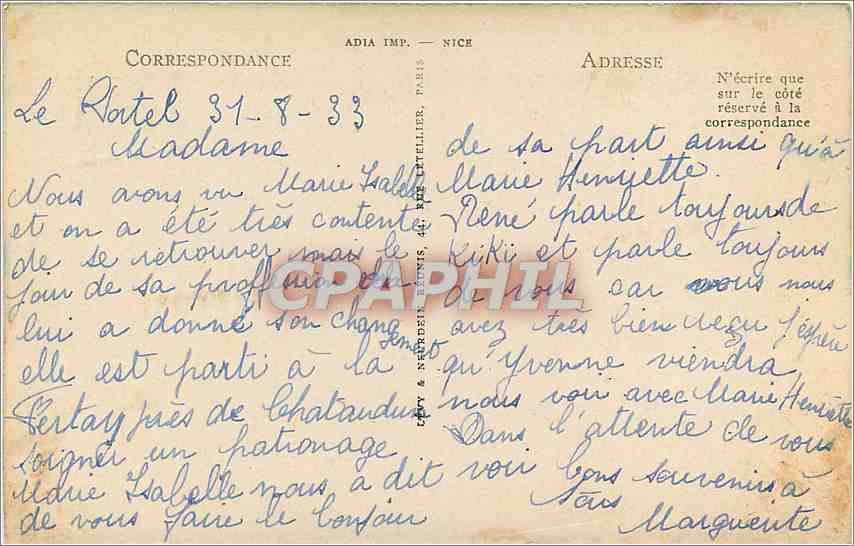 ADIA IMP. — NICE
CORRESPONDANCE
ADRESSE
N'écrire que
sur le côté
réservé à la
correspondance
LÉVY & NEURDEIN RÉUNIS, 44, RUE LETELLIER, PARIS
CPAPHIL
Le Portel 31-8-33
Madame
Nous avons vu Marie Isabelle
et on a été très contente
de se retrouver mais le
jour de sa profession
lui a donné son chang
ement
elle est parti à la
près de Chataudun
soigner un patronage
Marie Isabelle nous a dit
de vous faire le bonjour
de sa part ainsi qu'à
Marie Henriette.
René parle toujours de
KiKi et parle toujours
de vous car vous nous
avez très bien reçu j'espère
qu'Yvonne viendra
nous voir avec Marie Henriette
Dans l'attente de vous
voir bons souvenirs à
Tous
Marguerite